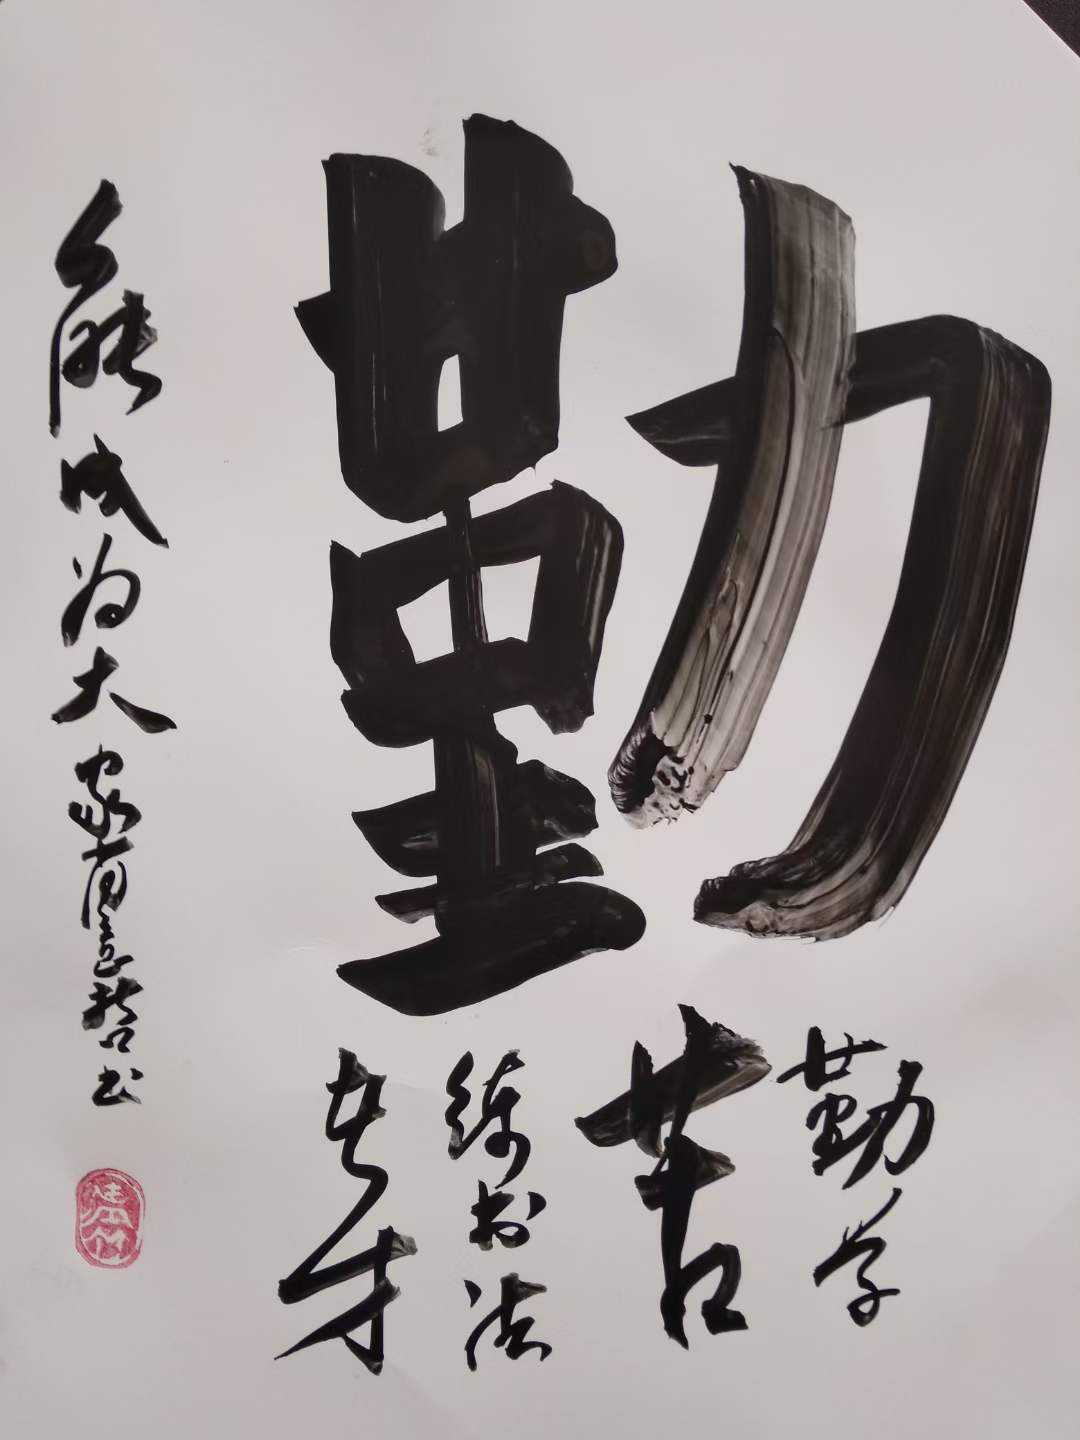 勤
勤学
苦
练书法
者才
能成为大家
书